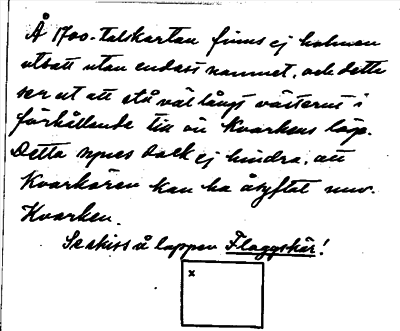 Å 1700-talskartan finns ej holmen
utsatt utan endast namnet, och detta
ser ut att stå väl långt västerut i
förhållande till ön Kvarkens läge.
Detta synes dock ej hindra, att
Kvarkören kan ha åsyftat nuv.
Kvarken.
Se skiss å lappen Flaggskär!
x